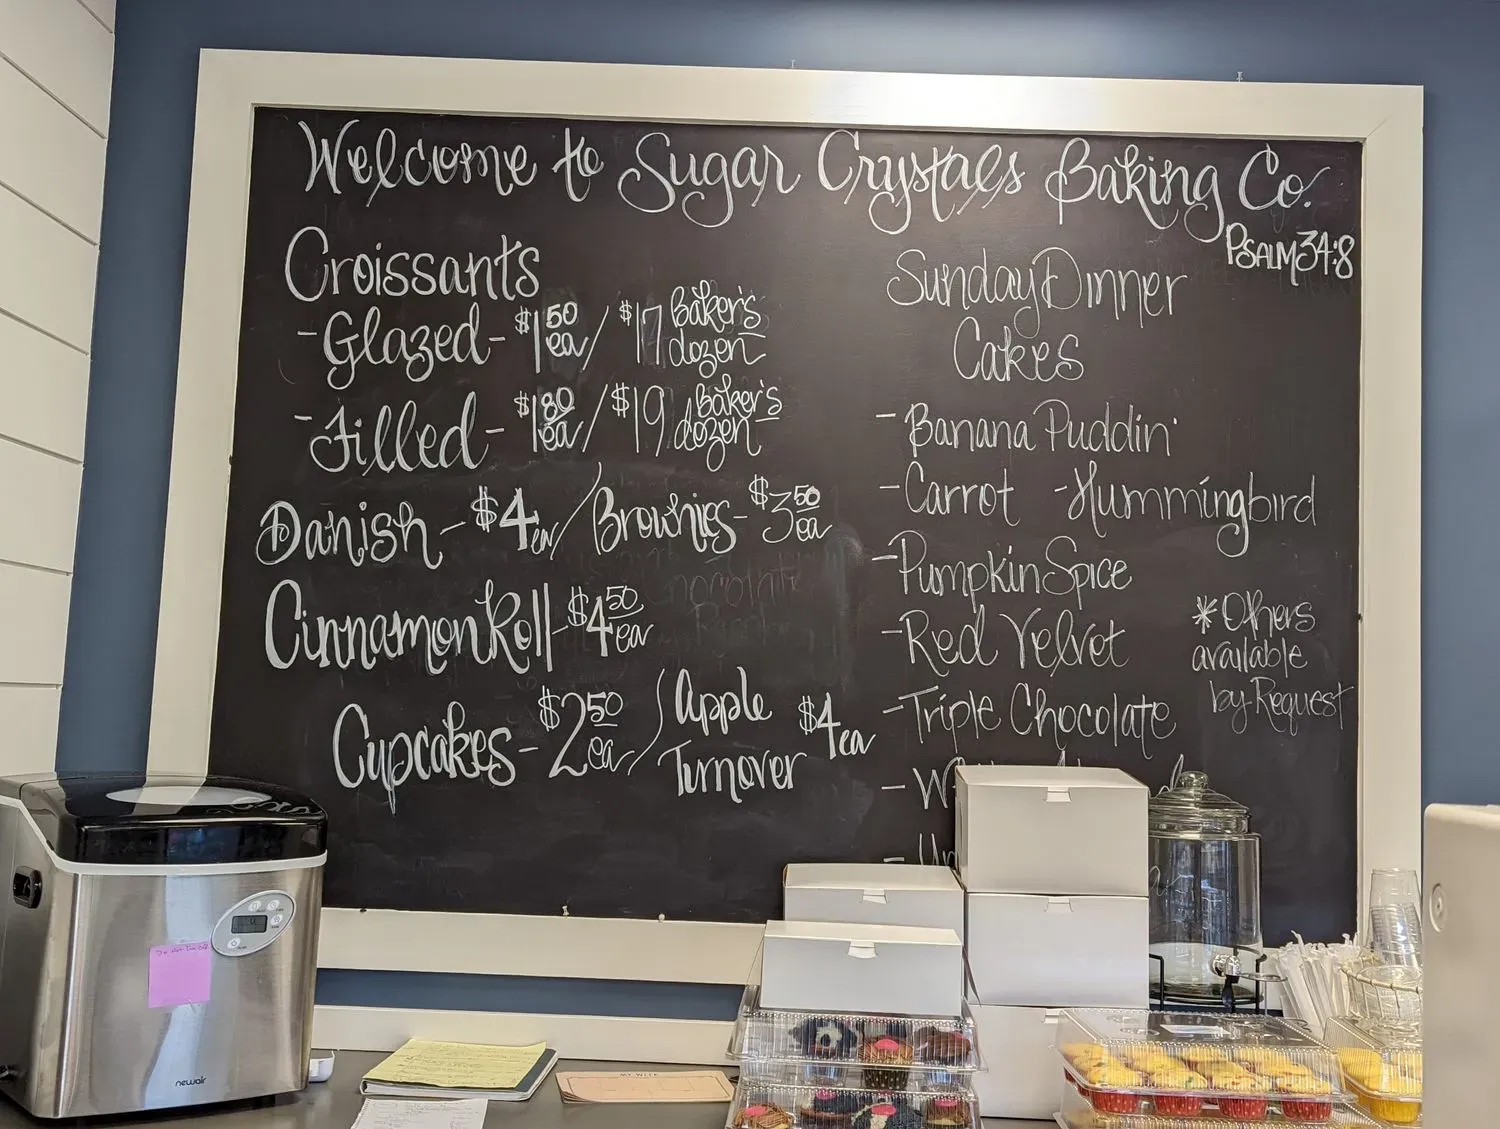 Welcome to Sugar Crystals Baking Co.
Psalm 34:8
Croissants
-Glazed- $1.50 ea / $17 Baker's dozen
-Filled- $1.80 ea / $19 Baker's dozen
Danish - $4 ea / Brownies- $3.50 ea
Cinnamon Roll - $4.50 ea
Cupcakes - $2.50 ea / Apple Turnover $4 ea
Sunday Dinner
Cakes
-Banana Puddin'
-Carrot -Hummingbird
-Pumpkin Spice
-Red Velvet
-Triple Chocolate
*Others
available
by Request
newair
MY WEEK